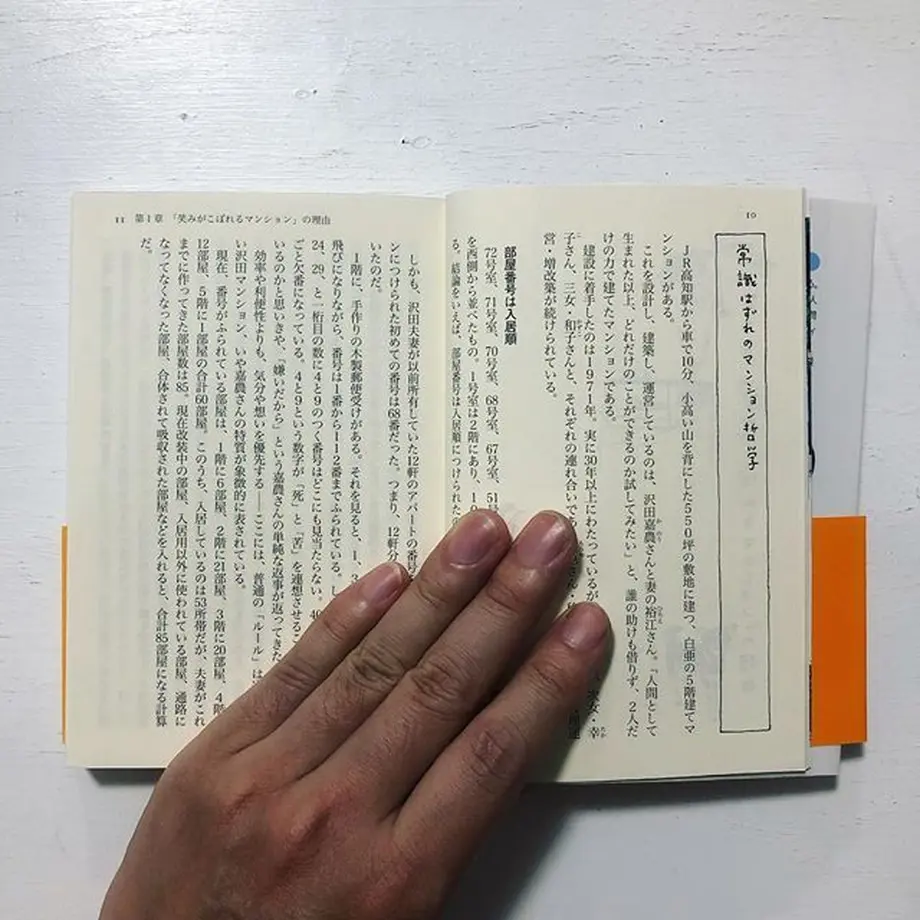 10
常識はずれのマンション哲学
JR高知駅から車で10分、小高い山を背にした550坪の敷地に建つ、白亜の5階建てマ
ンションがある。
これを設計し、建築し、運営しているのは、沢田嘉農さんと妻の裕江さん。「人間として
生まれた以上、どれだけのことができるのか試してみたい」と、誰の助けも借りず、2人だ
けの力で建てたマンションである。
建設に着手したのは1971年。実に30年以上にわたっているが
子さん、三女・和子さんと、それぞれの連れ合いである 次女・幸
営・増改築が続けられている。
部屋番号は入居順
72号室、71号室、70号室、68号室、67号室、51号
を西側から並べたもの。1号室は2階にあり、10
る。結論をいえば、部屋番号は入居順につけられたの
11 第1章 「笑みがこぼれるマンション」の理由
しかも、沢田夫妻が以前所有していた12軒のアパートの番号を
ンにつけられた初めての番号は68番だった。つまり、12軒分
いたのだ。
1階に、手作りの木製郵便受けがある。それを見ると、1、3
飛びになりながら、番号は1番から112番までふられている。し
24、29、と一桁目の数に4と9のつく番号はどこにも見当たらない。40
ごと欠番になっている。4と9という数字が「死」と「苦」を連想させるこ
いるのかと思いきや、「嫌いだから」という嘉農さんの単純な返事が返ってきた
効率や利便性よりも、気分や想いを優先する——ここには、普通の「ルール」は
い沢田マンション、いや嘉農さんの特質が象徴的に表されている。
現在、番号がふられている部屋は、1階に6部屋、2階に21部屋、3階に20部屋、4階
12部屋、5階に1部屋の合計60部屋。このうち、入居しているのは53所帯だが、夫妻がこれ
までに作ってきた部屋数は85。現在改装中の部屋、入居用以外に使われている部屋、通路に
なってなくなった部屋、合体されて吸収された部屋などを入れると、合計85部屋になる計算
だ。